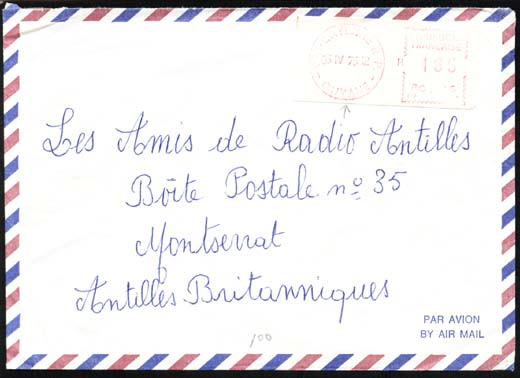 GUYANE
REPUBLIQUE
FRANCAISE
Les Amis de Radio Antilles
Boîte Postale nº 35
Montserrat
Antilles Britanniques
PAR AVION
BY AIR MAIL
100